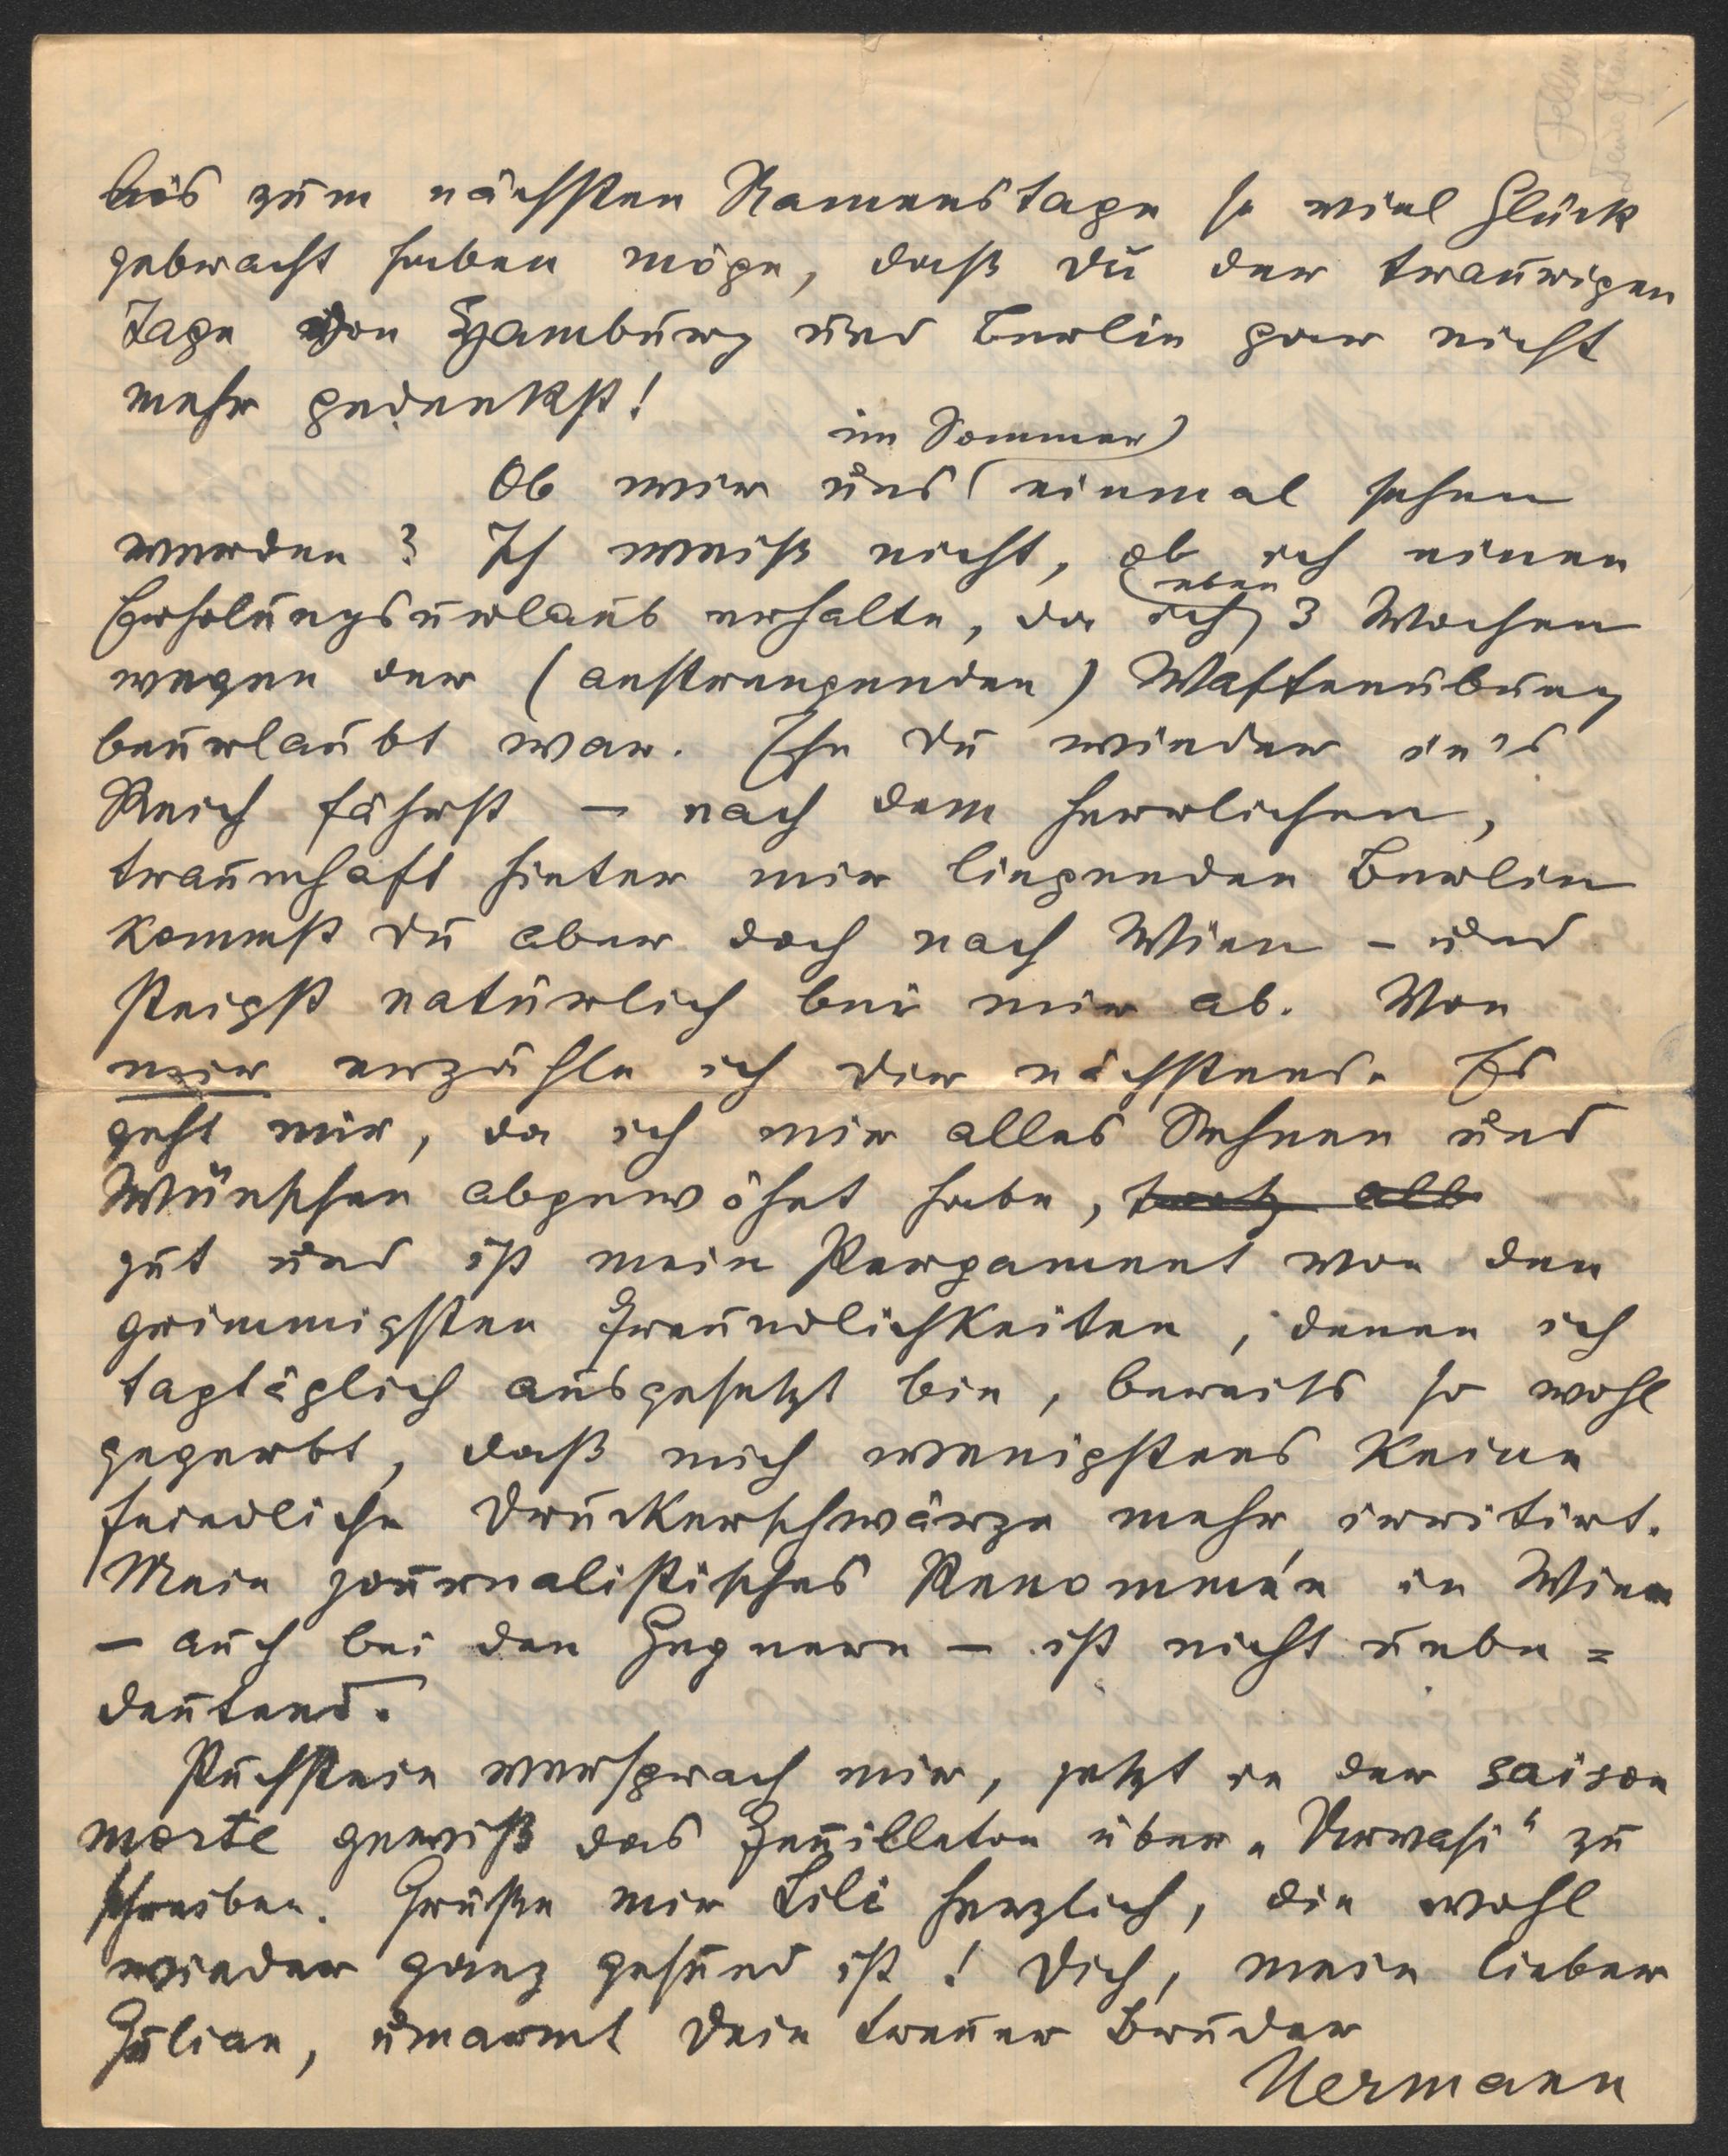 bis zum nächsten Namenstage so viel Glück
gebracht haben möge, daß du der traurigen
Tage von Hamburg und Berlin gar nicht
mehr gedenkst!
im Sommer
Ob wir uns einmal sehen
werden? Ich weiß nicht, ob ich einen
eben
Erholungsurlaub erhalte, da ich 3 Wochen
wegen der (anstrengenden) Waffenübung
beurlaubt war. Ehe du wieder in's
Reich fährst – nach dem herrlichen,
traumhaft hinter mir liegenden Berlin
kommst du aber doch nach Wien – und
steigst natürlich bei mir ab. Von
mir erzähle ich dir nächstens. Es
geht mir, da ich mir alles Sehnen und
Wünschen abgewöhnt habe, trotz alle
gut und ist mein Pergament von den
grimmigsten Freundlichkeiten, denen ich
tagtäglich ausgesetzt bin, bereits so wohl
gegerbt, daß mich wenigstens keine
feindliche Druckerschwärze mehr irritirt.
Mein journalistisches Renommée in Wien
– auch bei den Gegnern – ist nicht unbe=
deutend.
Puchstein versprach mir, jetzt in der saison
morte gewiß das Feuilleton über „Urvasi“ zu
schreiben. Grüße mir Lili herzlich, die wohl
wieder ganz gesund ist! Dich, mein lieber
Julian, umarmt dein treuer Bruder
Hermann